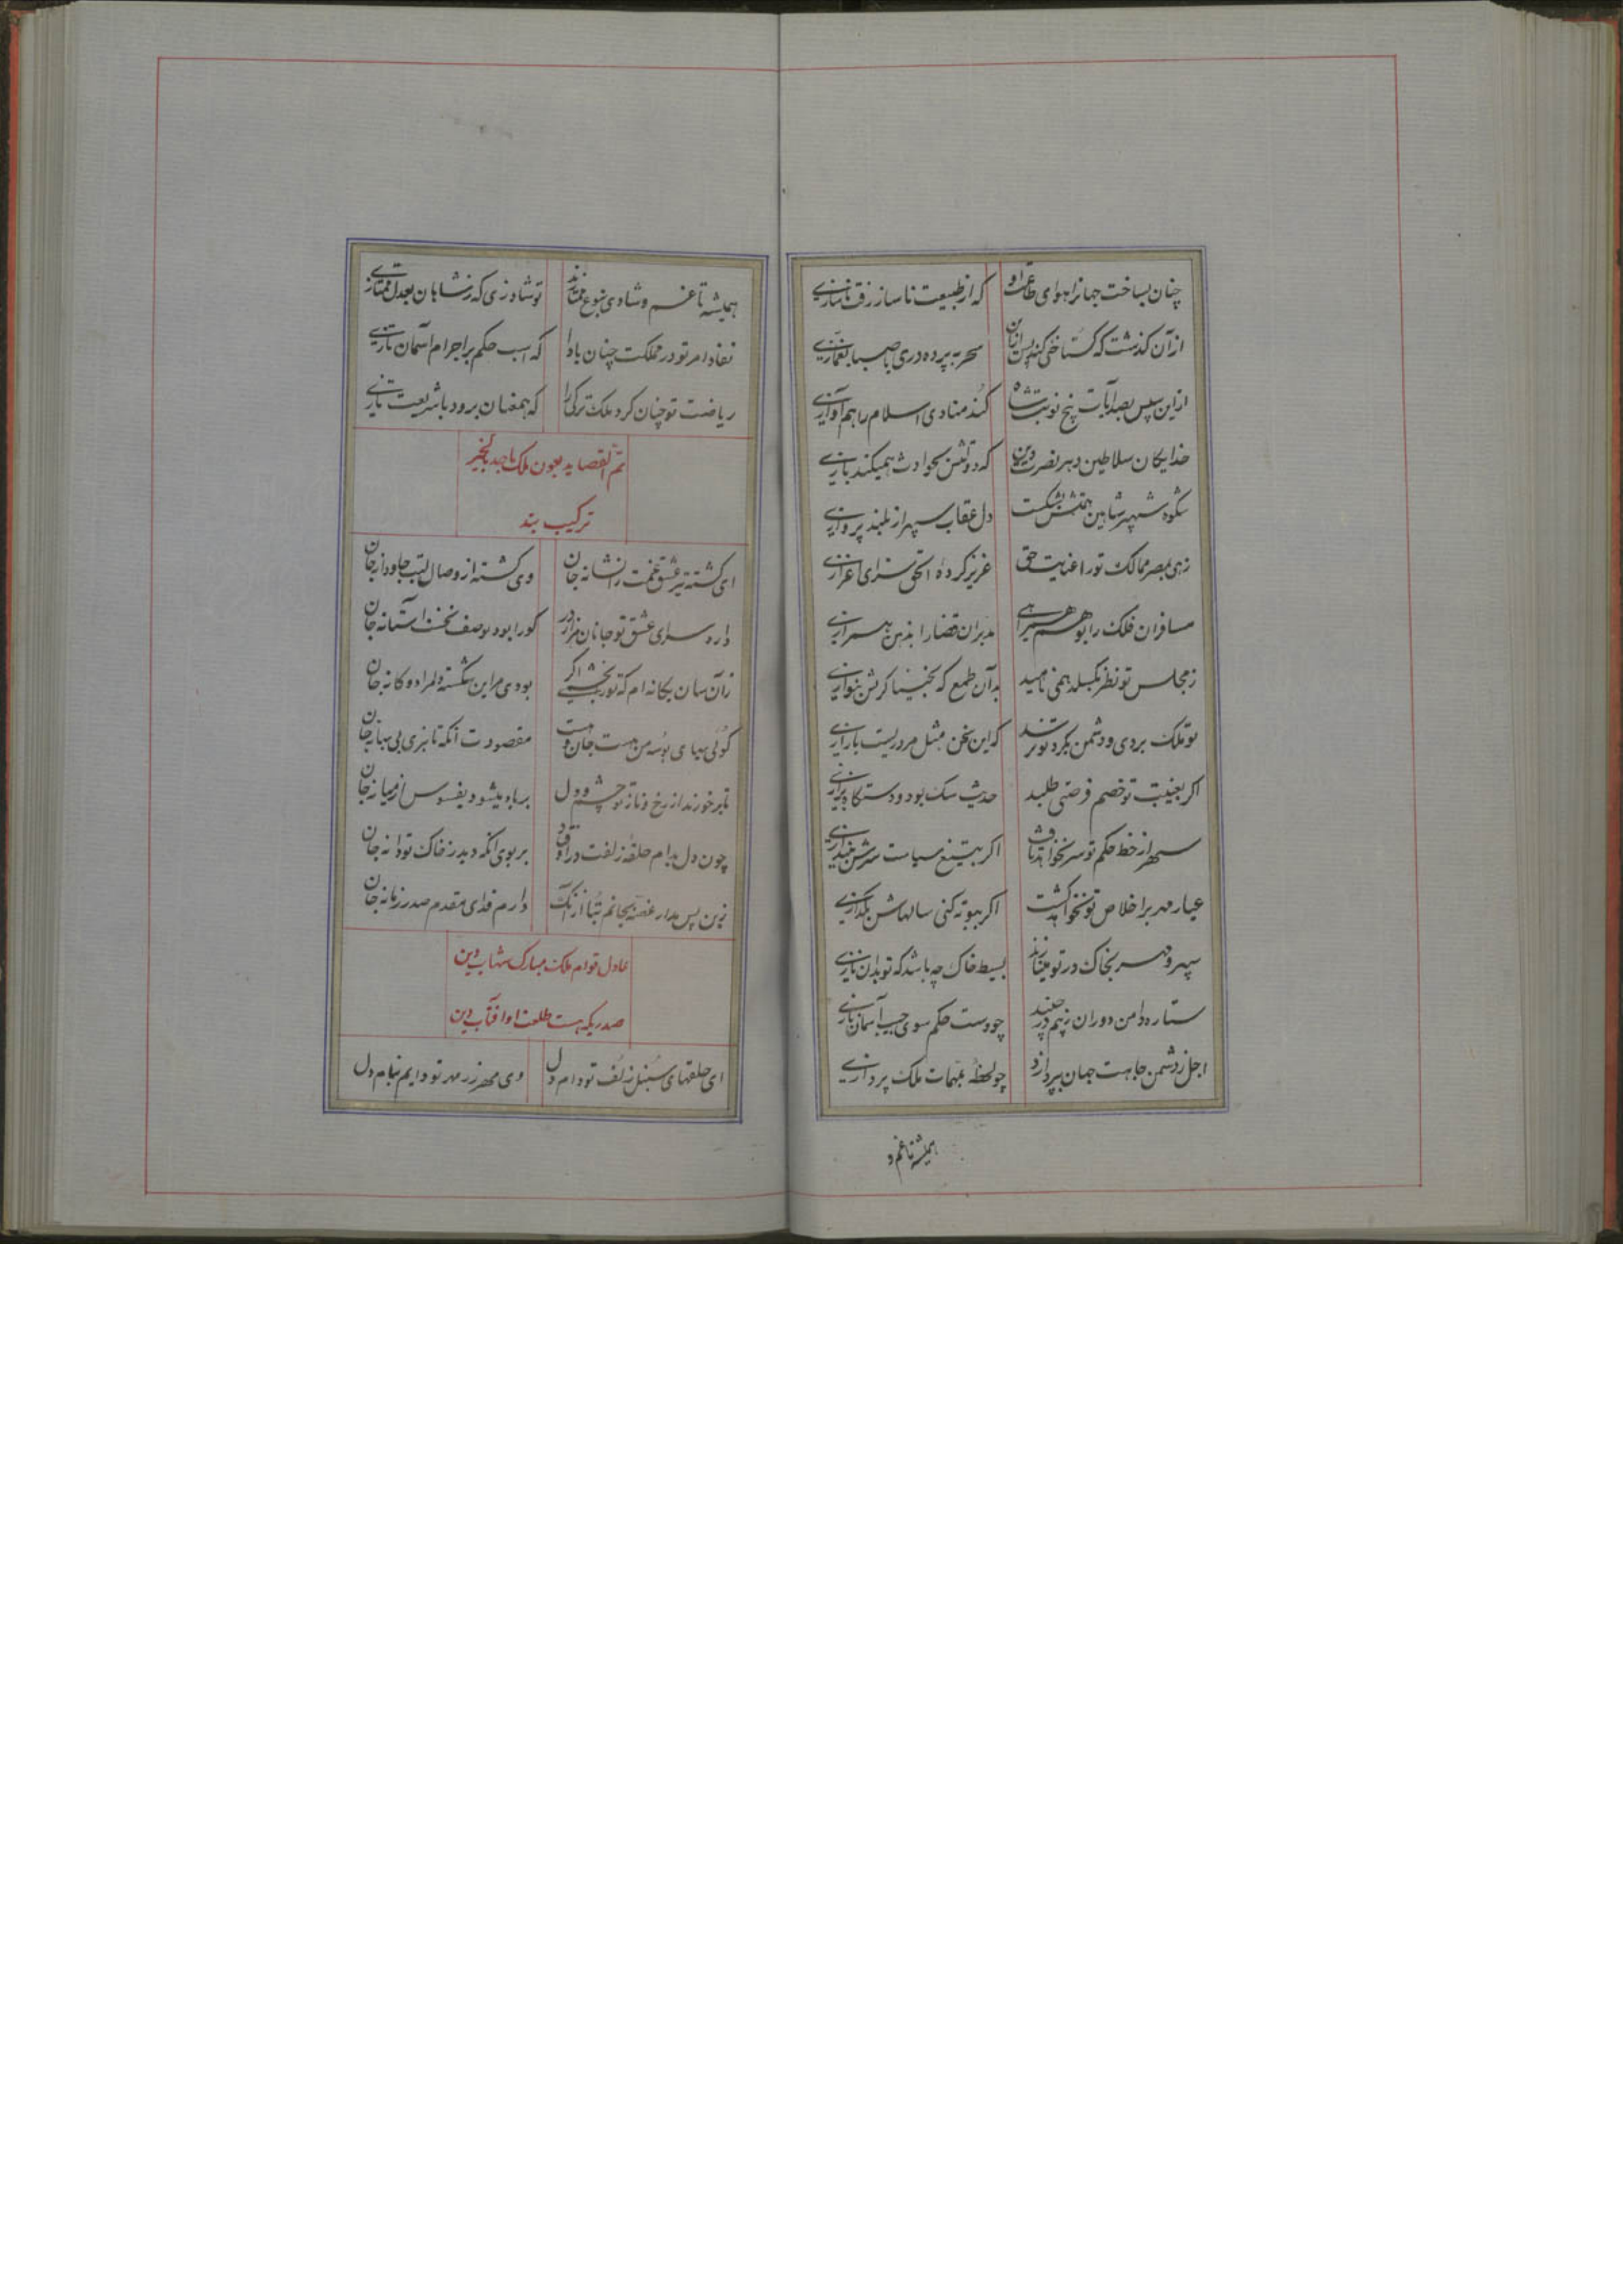 چنان بساخت جهانرا هوای طاعت او که از طبیعت ناساز رفت ناسازی
از آن گذشت که گستاخی کند پس ازان سحر به پرده دری با صبا بغمازی
ازین سپس بصدا بات پنج نوبت شاه کند منادی اسلام را هم آوازی
خدایگان سلاطین دهر نصرت دین که دولتش بحوادث همیکند بازی
شکوه شهپر شاهین همتش بشکست دل عقاب سپهر از بلند پروازی
زهی بمصر ممالک تو را عنایت حق عزیز کرده الحق سزای اعزازی
مسافران فلک را بوهم همراهی مدبران قضا را بذهن همرازی
ز مجلس تو نظر نگسلد همی ناهید بدآن طمع که بخنیاگریش بنوازی
تو ملک بردی و دشمن بگرد تو نرسد که این سخن مثل مروریست یا رازی
اگر بغیبت تو خصم فرصتی طلبد حدیث سگ بود و دستگاه بزازی
سپهر از خط حکم تو سر نخواهد تافت اگر بتیغ سیاست سرش بیندازی
عیار مهر بر اخلاص تو نخواهد گشت اگر ببوته کنی سالهاش بگدازی
سپهر و مهر بخاک در تو مینازند بسیط خاک چه باشد که تو بدان نازی
ستاره دامن دوران ز بیم در چیند چو دست حکم سوی جیب آسمان یازی
اجل ز دشمن جاهت جهان بپردازد چو لحظه بمهمات ملک پردازی
همیشه تا غم و
همیشه تا غم و شادی بنوع ممتازند تو شاد زی که ز شاهان بعدل ممتازی
نفاذ امر تو در مملکت چنان بادا که اسب حکم بر اجرام آسمان تازی
ریاضت تو چنان کرد ملک ترکی را که همعنان برود با شریعت تازی
تم القصاید بعون ملک ماجد بالخیر
ترکیب بند
ای گشته تیر عشق غمت را نشانه جان وی گشته از وصال لبت جاودانه جان
دارد سرای عشق تو جانان هزار در کورا بود بوصف نخست آستانه جان
زآن سان یگانه ام که تورا بخشمی اگر بودی مر این شکسته دلمرا دوگانه جان
گوئی بهای بوسه من هست جان و هست مقصودت آنکه تا ببری بی بهانه جان
تا بر خورند از رخ و ناز تو چشم و دل بر باد میشود بفسوس از میانه جان
چون دل بدام حلقه زلفت در اوفتد بر بوی آنکه دید ز خاک تو دانه جان
زین پس مدار غصه بجانم بتا از آنک دارم فدای مقدم صدر زمانه جان
عادل قوام ملک مبارک شهاب دین
صدریکه هست طلعت او آفتاب دین
ای حلقهای سنبل زلف تو دام دل وی مهر زر مهر تو دایم بنام دل